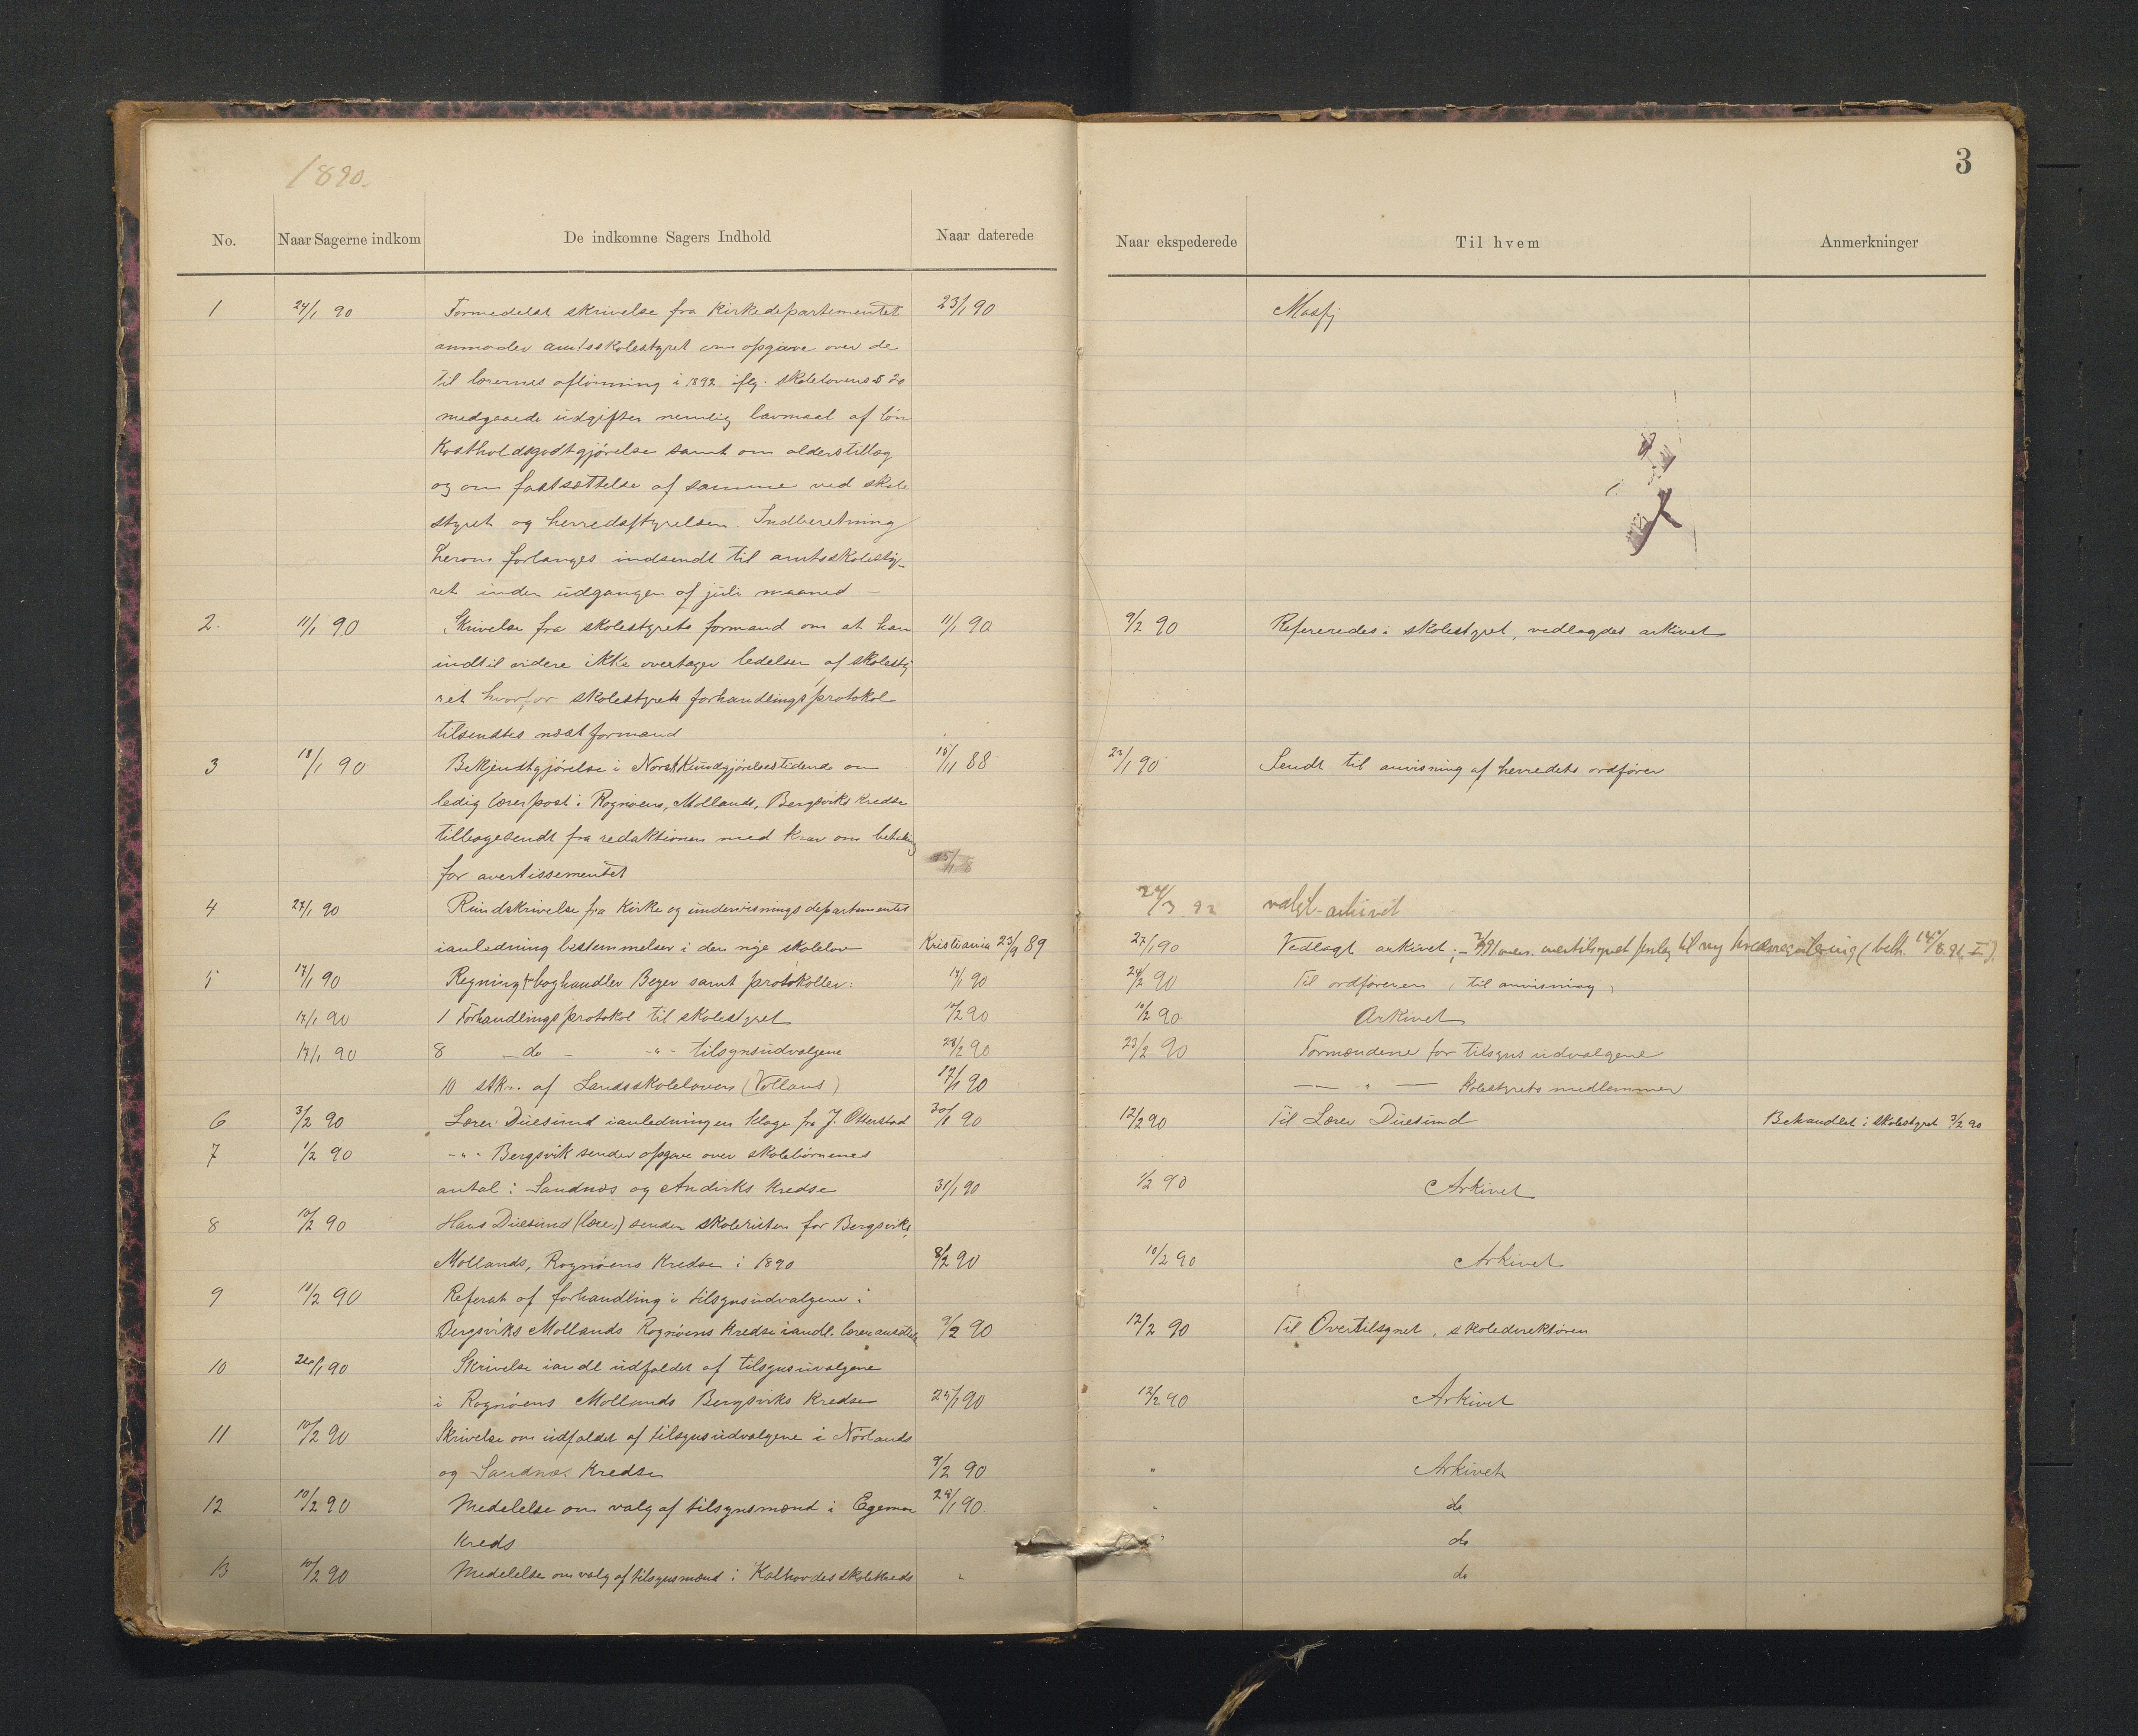 1890.
3
No. Naar Sagerne indkom De indkomne Sagers Indhold Naar daterede Naar ekspederede Til hvem Anmerkninger
1 24/1 90 Formedelst skrivelse fra Kirkedepartementet 23/1 90
anmoder amtsskolestyret om opgave over de
til lærernes aflønning i 1892 iflg. skolelovens § 20
medgaaede udgifter nemlig lavmaal af løn
Kostholdsgodtgjørelse samt om alderstillæg
og om fastsættelse af samme ved skole
styret og herredsstyrelsen. Indberetning
herom forlanges indsendt til amtsskolesty-
ret inden udgangen af juli maaned
2. 11/1 90 Skrivelse fra skolestyrets formand om at han 11/1 90 9/2 90 Refereredes i skolestyret, vedlagdes arkivet
indtil videre ikke overtager ledelsen af skolesty
ret hvorfor skolestyrets forhandlingsprotokol
tilsendtes næstformand
3 18/1 90 Bekjendtgjørelse i Norsk Kundgjørelsestidende om 15/11 88 23/1 90 Sendt til anvisning af herredets ordfører
ledig lærerpost i Rognøens, Mollands, Bergsviks Kredse
tilbagesendt fra redaktionen med krav om betaling
for avertissementet
4 27/1 90 Rundskrivelse fra Kirke og undervisningsdepartementet 24/3 92 valgt-arkivet
ianledning bestemmelser i den nye skolelov Kristiania 23/9 89 27/1 90 Vedlagt arkivet; til ny kredsregulering
5 17/1 90 Regning boghandler Beyer samt protokoller: 17/1 90 24/2 90 Til ordføreren, til anvisning,
17/1 90 1 Forhandlingsprotokol til skolestyret 10/2 90 10/2 90 Arkivet
17/1 90 8 -do- -"- tilsynsudvalgene 23/2 90 23/2 90 Formændene for tilsynsudvalgene
10 stkr. af Landsskoleloven (Vollans) 17/1 90 — " — skolestyrets medlemmer
6 3/2 90 Lærer Duesund ianledningen klage fra J. Otterstad 30/1 90 12/2 90 Til Lærer Duesund Behandlet i skolestyret 3/2 90
7 1/2 90 -"- Bergsvik sender opgave over skolebørnenes
antal i Sandnæs og Andviks Kredse 31/1 90 1/2 90 Arkivet
8 10/2 90 Hans Duesund (lærer) sender skoleruten for Bergsviks,
Mollands, Rognøens Kredse i 1890 8/2 90 10/2 90 Arkivet
9 11/2 90 Referat af forhandling i tilsynsudvalgene i
Bergsviks Mollands Rognøens Kredse iandl. 9/2 90 12/2 90 Til Overtilsynet, skoledirektøren
10 26/1 90 Skrivelse iandl udfaldet af tilsynsuvalgene
i Rognøens Mollands Bergsviks Kredse 25/1 90 12/2 90 Arkivet
11 10/2 90 Skrivelse om udfaldet af tilsynsudvalgene i Nørlands
og Sandnæs Kredse 9/2 90 " Arkivet
12 10/2 90 Medelelse om valg af tilsynsmænd i 29/1 90 " do
Kreds " do
13 10/2 90 Medelelse om valg af tilsynsmænd i skolekreds " do